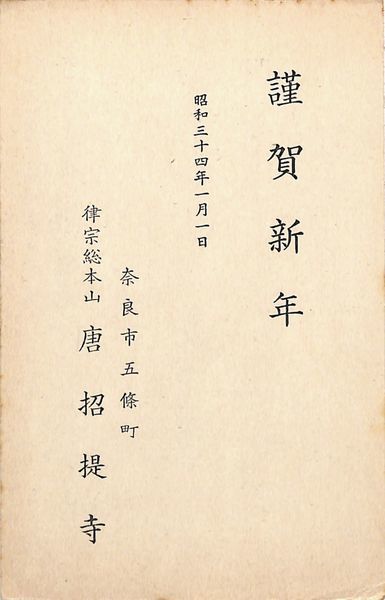 謹賀新年
昭和三十四年一月一日
奈良市五條町
律宗総本山 唐招提寺